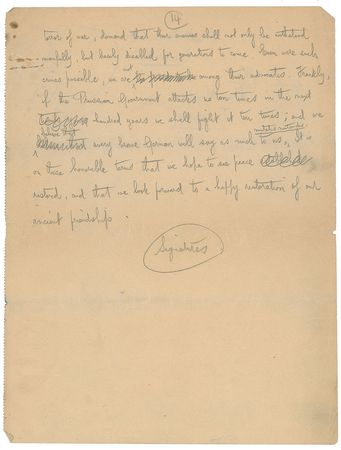 14
terror of war, demand that their enemies shall not only be withstood
manfully, but basely disabled for generations to come. Even were such
crimes possible, we are not among their advocates. Frankly,
if the Prussian Government attacks us ten times in the next
hundred years we shall fight it ten times; and we
believe that
every brave German will say as much to us. It is
on these honorable terms that we hope to see peace
restored, and that we look forward to a happy restoration of our
ancient friendship.
Signatures